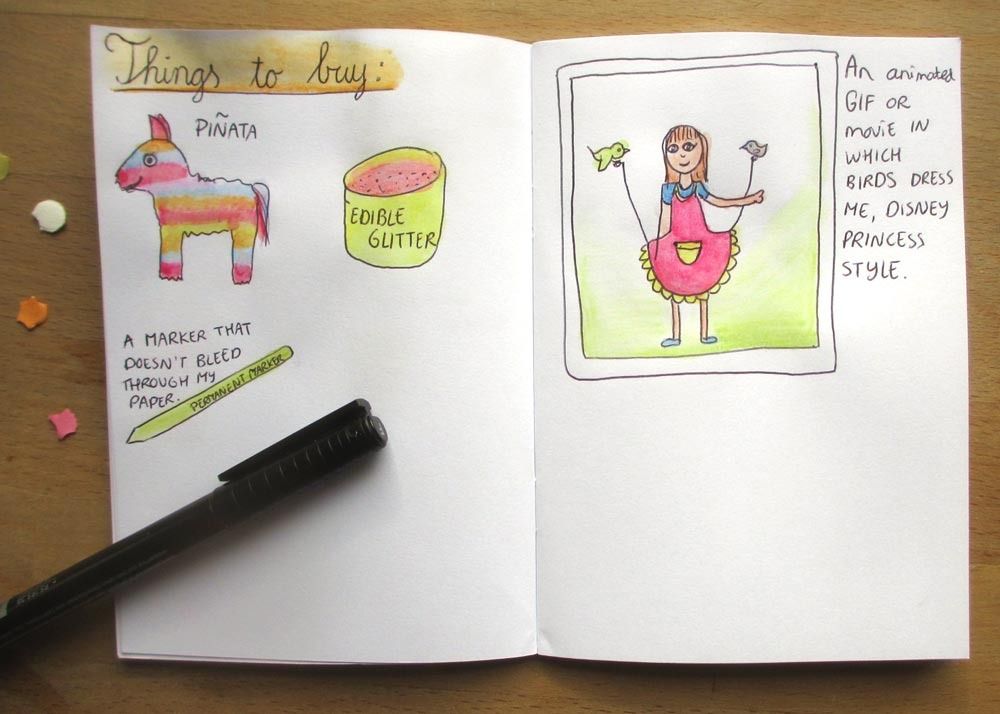 Things to buy:
PIÑATA
EDIBLE
GLITTER
A MARKER THAT
DOESN'T BLEED
THROUGH MY
PAPER.
PERMANENT MARKER
An animated
GIF OR
movie IN
WHICH
BIRDS DRESS
ME, DISNEY
PRINCESS
STYLE.